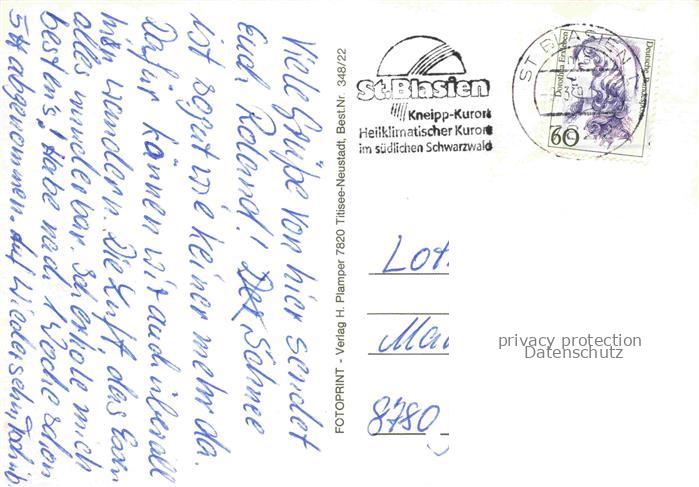 Viele Grüße von hier sendet
Euch Roland! Der Schnee
ist so gut wie keiner mehr da.
Dafür können wir auch überall
hier wandern. Die Luft, das Essen
alles wunderbar. So erhole mich
bestens! Habe nach 1 Woche schon
abgenommen. Auf Wiedersehn,
FOTOPRINT - Verlag H. Plamper 7820 Titisee-Neustadt, Best.Nr. 348/22
St. Blasien
Kneipp-Kurort
Heilklimatischer Kurort
im südlichen Schwarzwald
ST BLASIEN 1
Dorothea Erxleben
Deutsche Bundespost
60
Lot
Mai
8780
privacy protection
Datenschutz